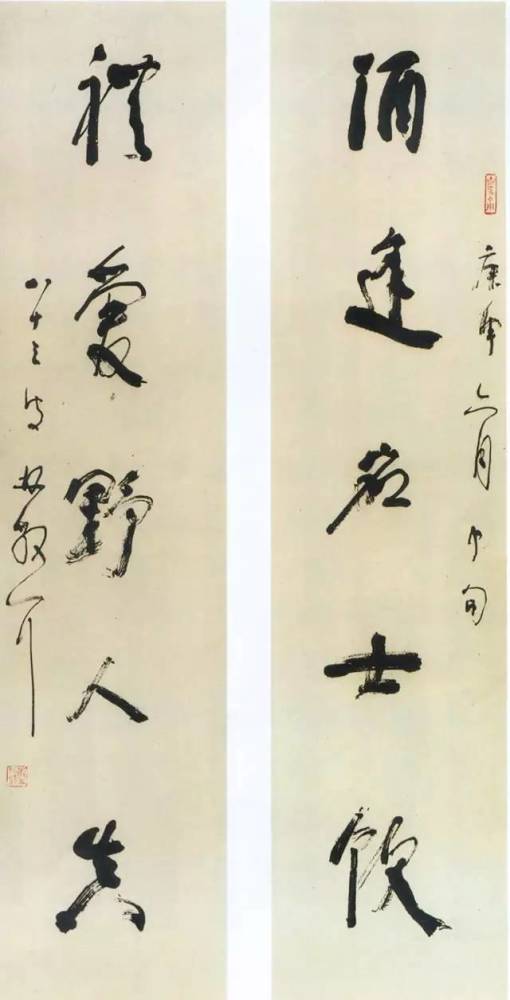 庚申六月中旬
酒逢名士飲
禮愛野人真
八十三叟林散耳